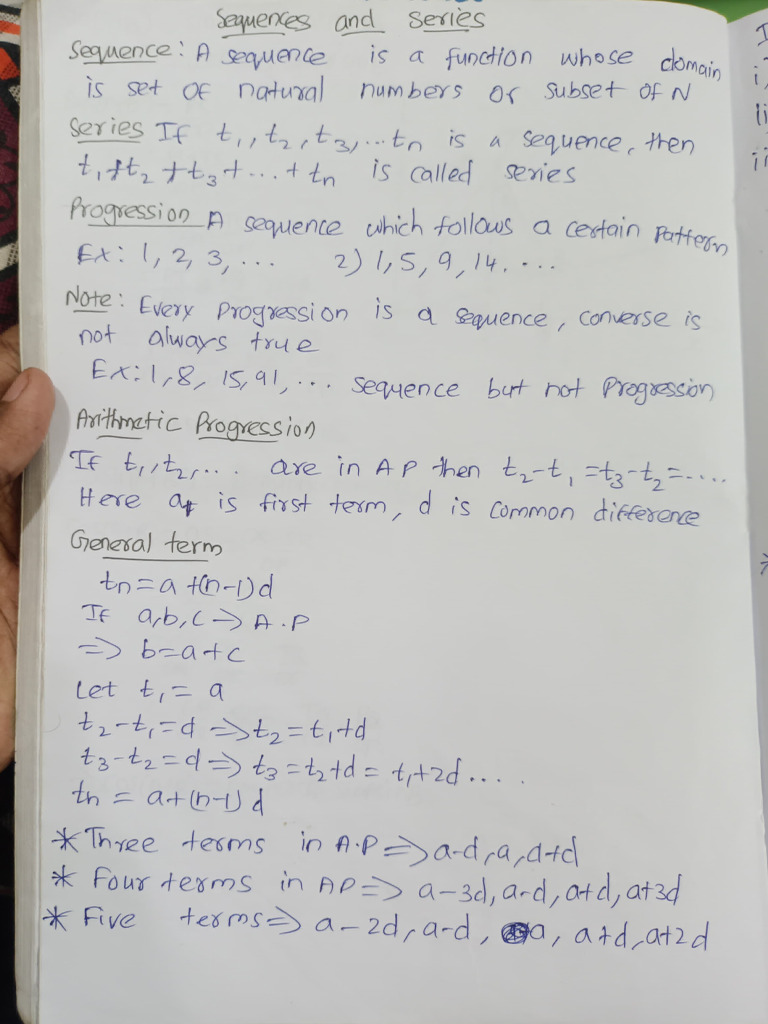 Sequences and series
Sequence: A sequence is a function whose domain
is set of natural numbers or subset of N
Series If t₁, t₂, t₃, ... tn is a sequence, then
t₁+t₂+t₃+...+tn is called series
Progression A sequence which follows a certain Pattern
Ex: 1, 2, 3, ... 2) 1, 5, 9, 14. ...
Note: Every Progression is a sequence, converse is
not always true
Ex: 1, 8, 15, 91, ... sequence but not Progression
Arithmetic Progression
If t₁, t₂, ... are in AP then t₂-t₁ = t₃-t₂ = ....
Here a is first term, d is common difference
General term
tn = a+(n-1)d
If a, b, c → A.P
⇒ b=a+c
Let t₁ = a
t₂-t₁=d ⇒ t₂=t₁+d
t₃-t₂=d ⇒ t₃=t₂+d = t₁+2d ....
tn = a+(n-1)d
* Three terms in A.P ⇒ a-d, a, a+d
* Four terms in AP ⇒ a-3d, a-d, a+d, a+3d
* Five terms ⇒ a-2d, a-d, a, a+d, a+2d